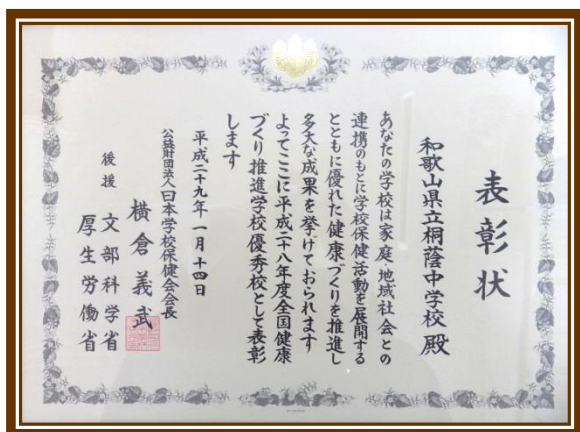 表彰状
和歌山県立桐蔭中学校 殿
あなたの学校は家庭 地域社会との
連携のもとに学校保健活動を展開する
とともに優れた健康づくりを推進し
多大な成果を挙げておられます
よってここに平成二十八年度全国健康
づくり推進学校優秀校として表彰
します
平成二十九年 一月 十四日
公益財団法人 日本学校保健会会長
横倉義武
後援 文部科学省
厚生労働省